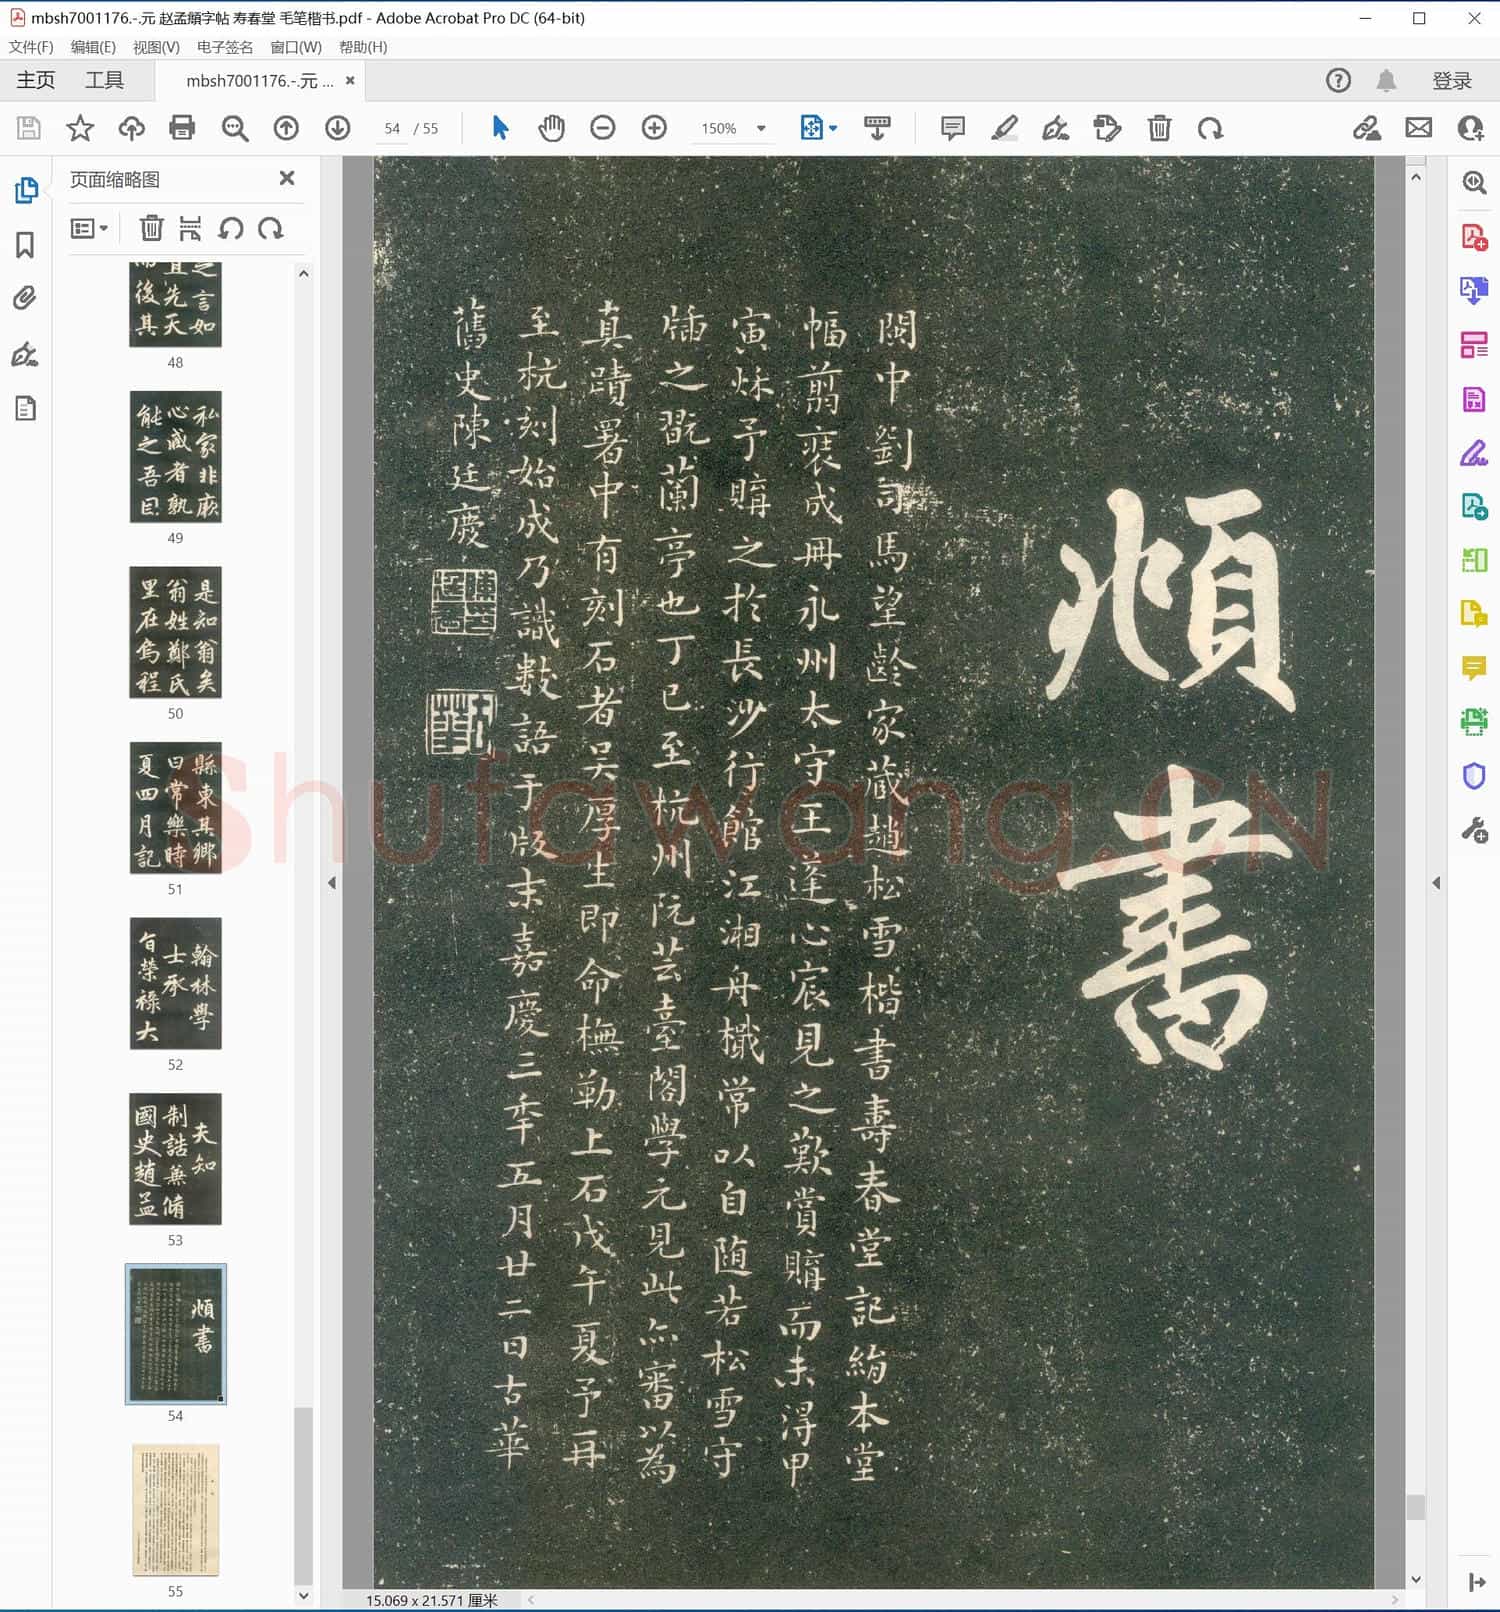 mbsh7001176.-.元 赵孟頫字帖 寿春堂 毛笔楷书.pdf - Adobe Acrobat Pro DC (64-bit)
文件(F) 编辑(E) 视图(V) 电子签名 窗口(W) 帮助(H)
主页 工具 mbsh7001176.-.元 ... 登录
54 / 55 150%
页面缩略图
之言如
直先天
後其
48
私家非厥
心藏者孰
能之吾目
49
是知翁矣
翁姓鄭氏
里在烏程
50
縣東其鄉
曰常樂時
夏四月記
51
翰林學
士承
旨榮祿大
52
夫知
制誥兼脩
國史趙孟
53
頫書
54
55
頫書
閩中劉司馬望齡家藏趙松雪楷書壽春堂記絹本堂
幅翦裝成冊永州太守王蓬心宸見之歎賞購而未得甲
寅秌予購之於長沙行館江湘舟檥常以自随若松雪守
之翫蘭亭也丁巳至杭州阮芸臺閣學元見此亦審以為
真蹟署中有刻石者吳厚生即命橅勒上石戊午夏予再
至杭刻始成乃識數語于版末嘉慶三年五月廿二日古華
舊史陳廷慶
Shufawang.CN
15.069 x 21.571 厘米